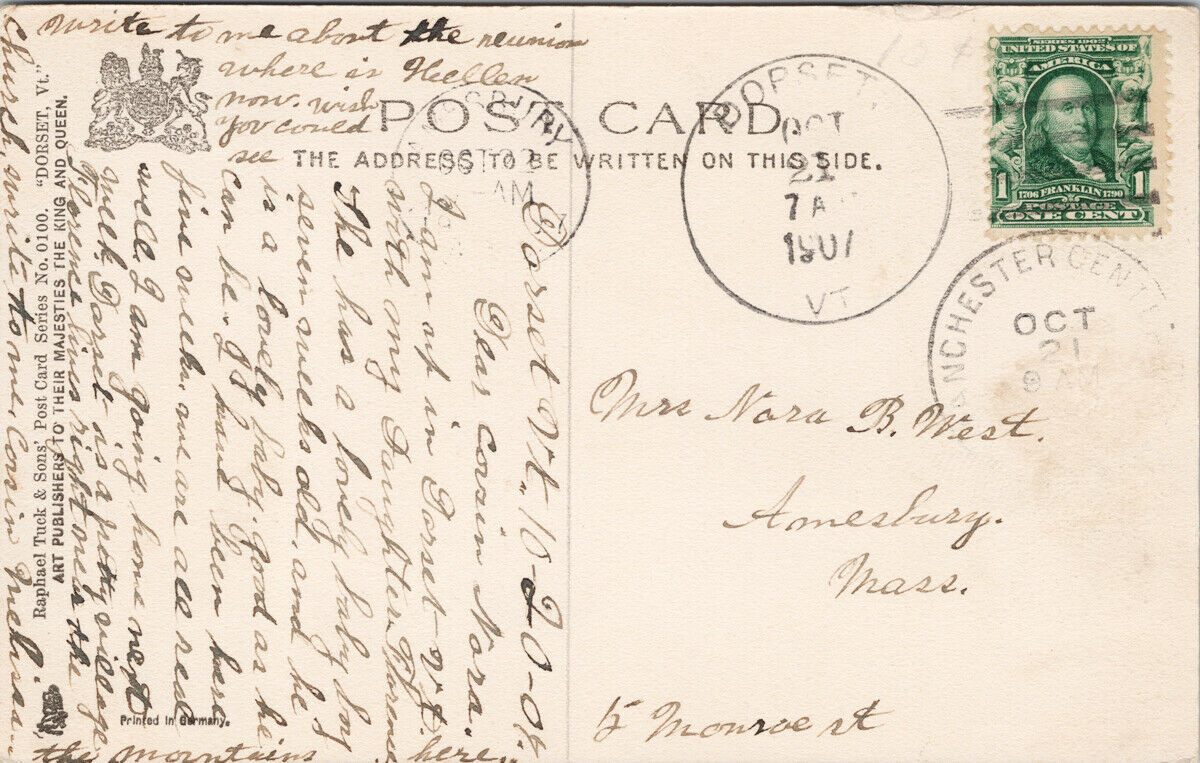 write to me about the reunion
where is Hellen
now. wish
you could
see
POST CARD
THE ADDRESS TO BE WRITTEN ON THIS SIDE.
DORSET,
OCT
21
7 A
1907
VT
SERIES 1902
UNITED STATES OF
AMERICA
1 1
1706 FRANKLIN 1790
POSTAGE
ONE CENT
ANCHESTER CENT
OCT
21
8 AM
OCT 22
AM
Dorset Vt. 10-20-07.
Dear Cousin Nora.
I am up in Dorset Vt.
with my Daughter Florence
she has a lovely baby boy
seven weeks old, and he
is a lovely baby. good as he
can be. I have been here
five weeks. we are all real
well, I am going home next
week, Dorset is a pretty village
Florence lives right near the
Church, write to me, Cosin
the mountains here.
Raphael Tuck & Sons' Post Card Series No. 0100. "DORSET, Vt."
ART PUBLISHERS TO THEIR MAJESTIES THE KING AND QUEEN.
Printed in Germany.
Mrs Nora B. West.
Amesbury.
Mass.
15 Monroe st